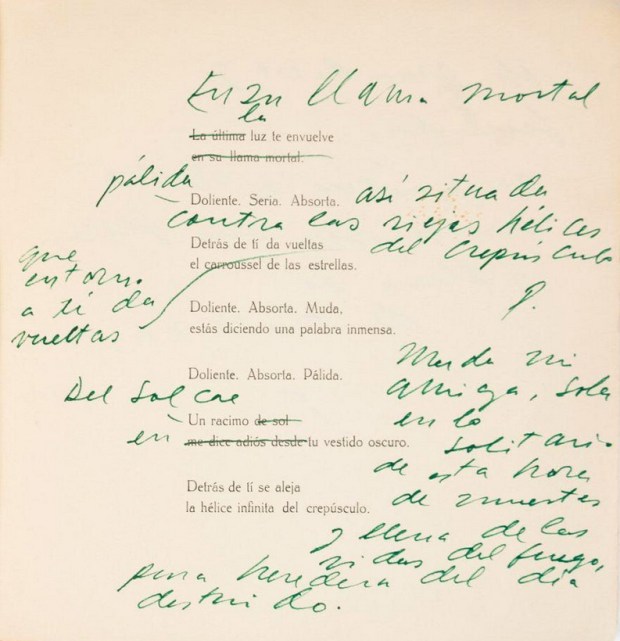 En su llama mortal
la
La última luz te envuelve
en su llama mortal.
pálida
Doliente. Seria. Absorta. así situada
contra las viejas hélices
del crepúsculo
Detrás de tí da vueltas
el carroussel de las estrellas.
que
en torno
a tí da
vueltas
Doliente. Absorta. Muda,
estás diciendo una palabra inmensa.
Doliente. Absorta. Pálida.
Muda mi
amiga, sola
en lo
solitario
de esta hora
de muertes
y llena de las
vidas del fuego,
pura heredera del día
destruido.
Del sol cae
Un racimo de sol
en
me dice adiós desde tu vestido oscuro.
Detrás de tí se aleja
la hélice infinita del crepúsculo.